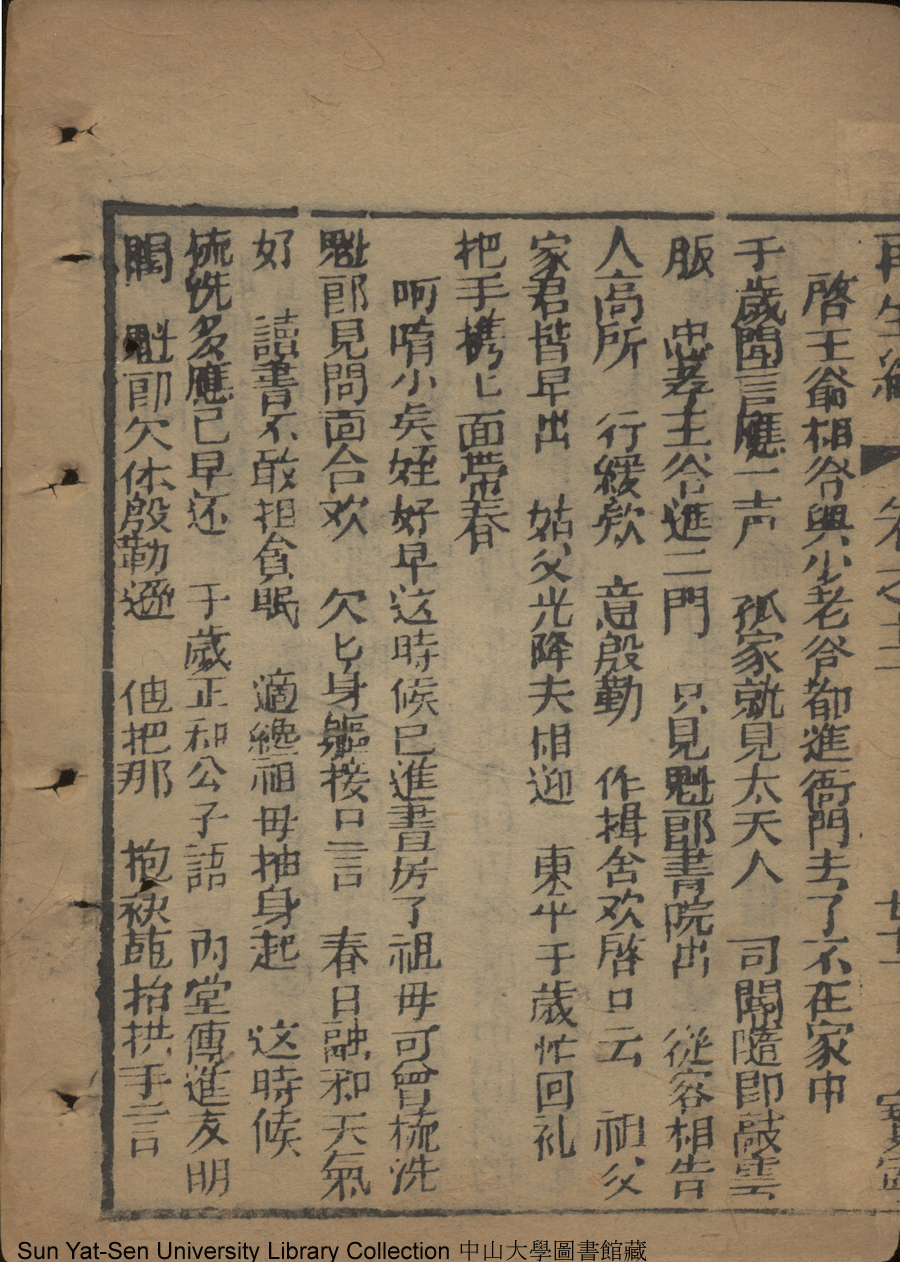 再生緣 卷之十二
啓王翁相爷與小老爷都進衙門去了不在家中
千歲聞言應一声 孤家就見太夫人 司閽隨即敲雲
版 忠孝王爷進二門 只見魁郎書院出 從客相告
人高所 行緩欸 意殷勤 作揖舍欢啓口云 祖父
家君皆早出 姑父光降夫相迎 東平千歲忙回礼
把手携匕面帶春
呵唷小矣姪好早这時候已進書房了祖毋可曾梳洗
魁郎見問面含欢 欠匕身軀接口言 春日融和天氣
好 讀書不敢担貪眠 適纔祖毋抽身起 这時候
梳洗多應已早还 千歲正和公子語 內堂傳進友明
閣 魁郎欠休殷勤遜 他把那 抱袂乾抬拱手言
Sun Yat-Sen University Library Collection 中山大學圖書館藏